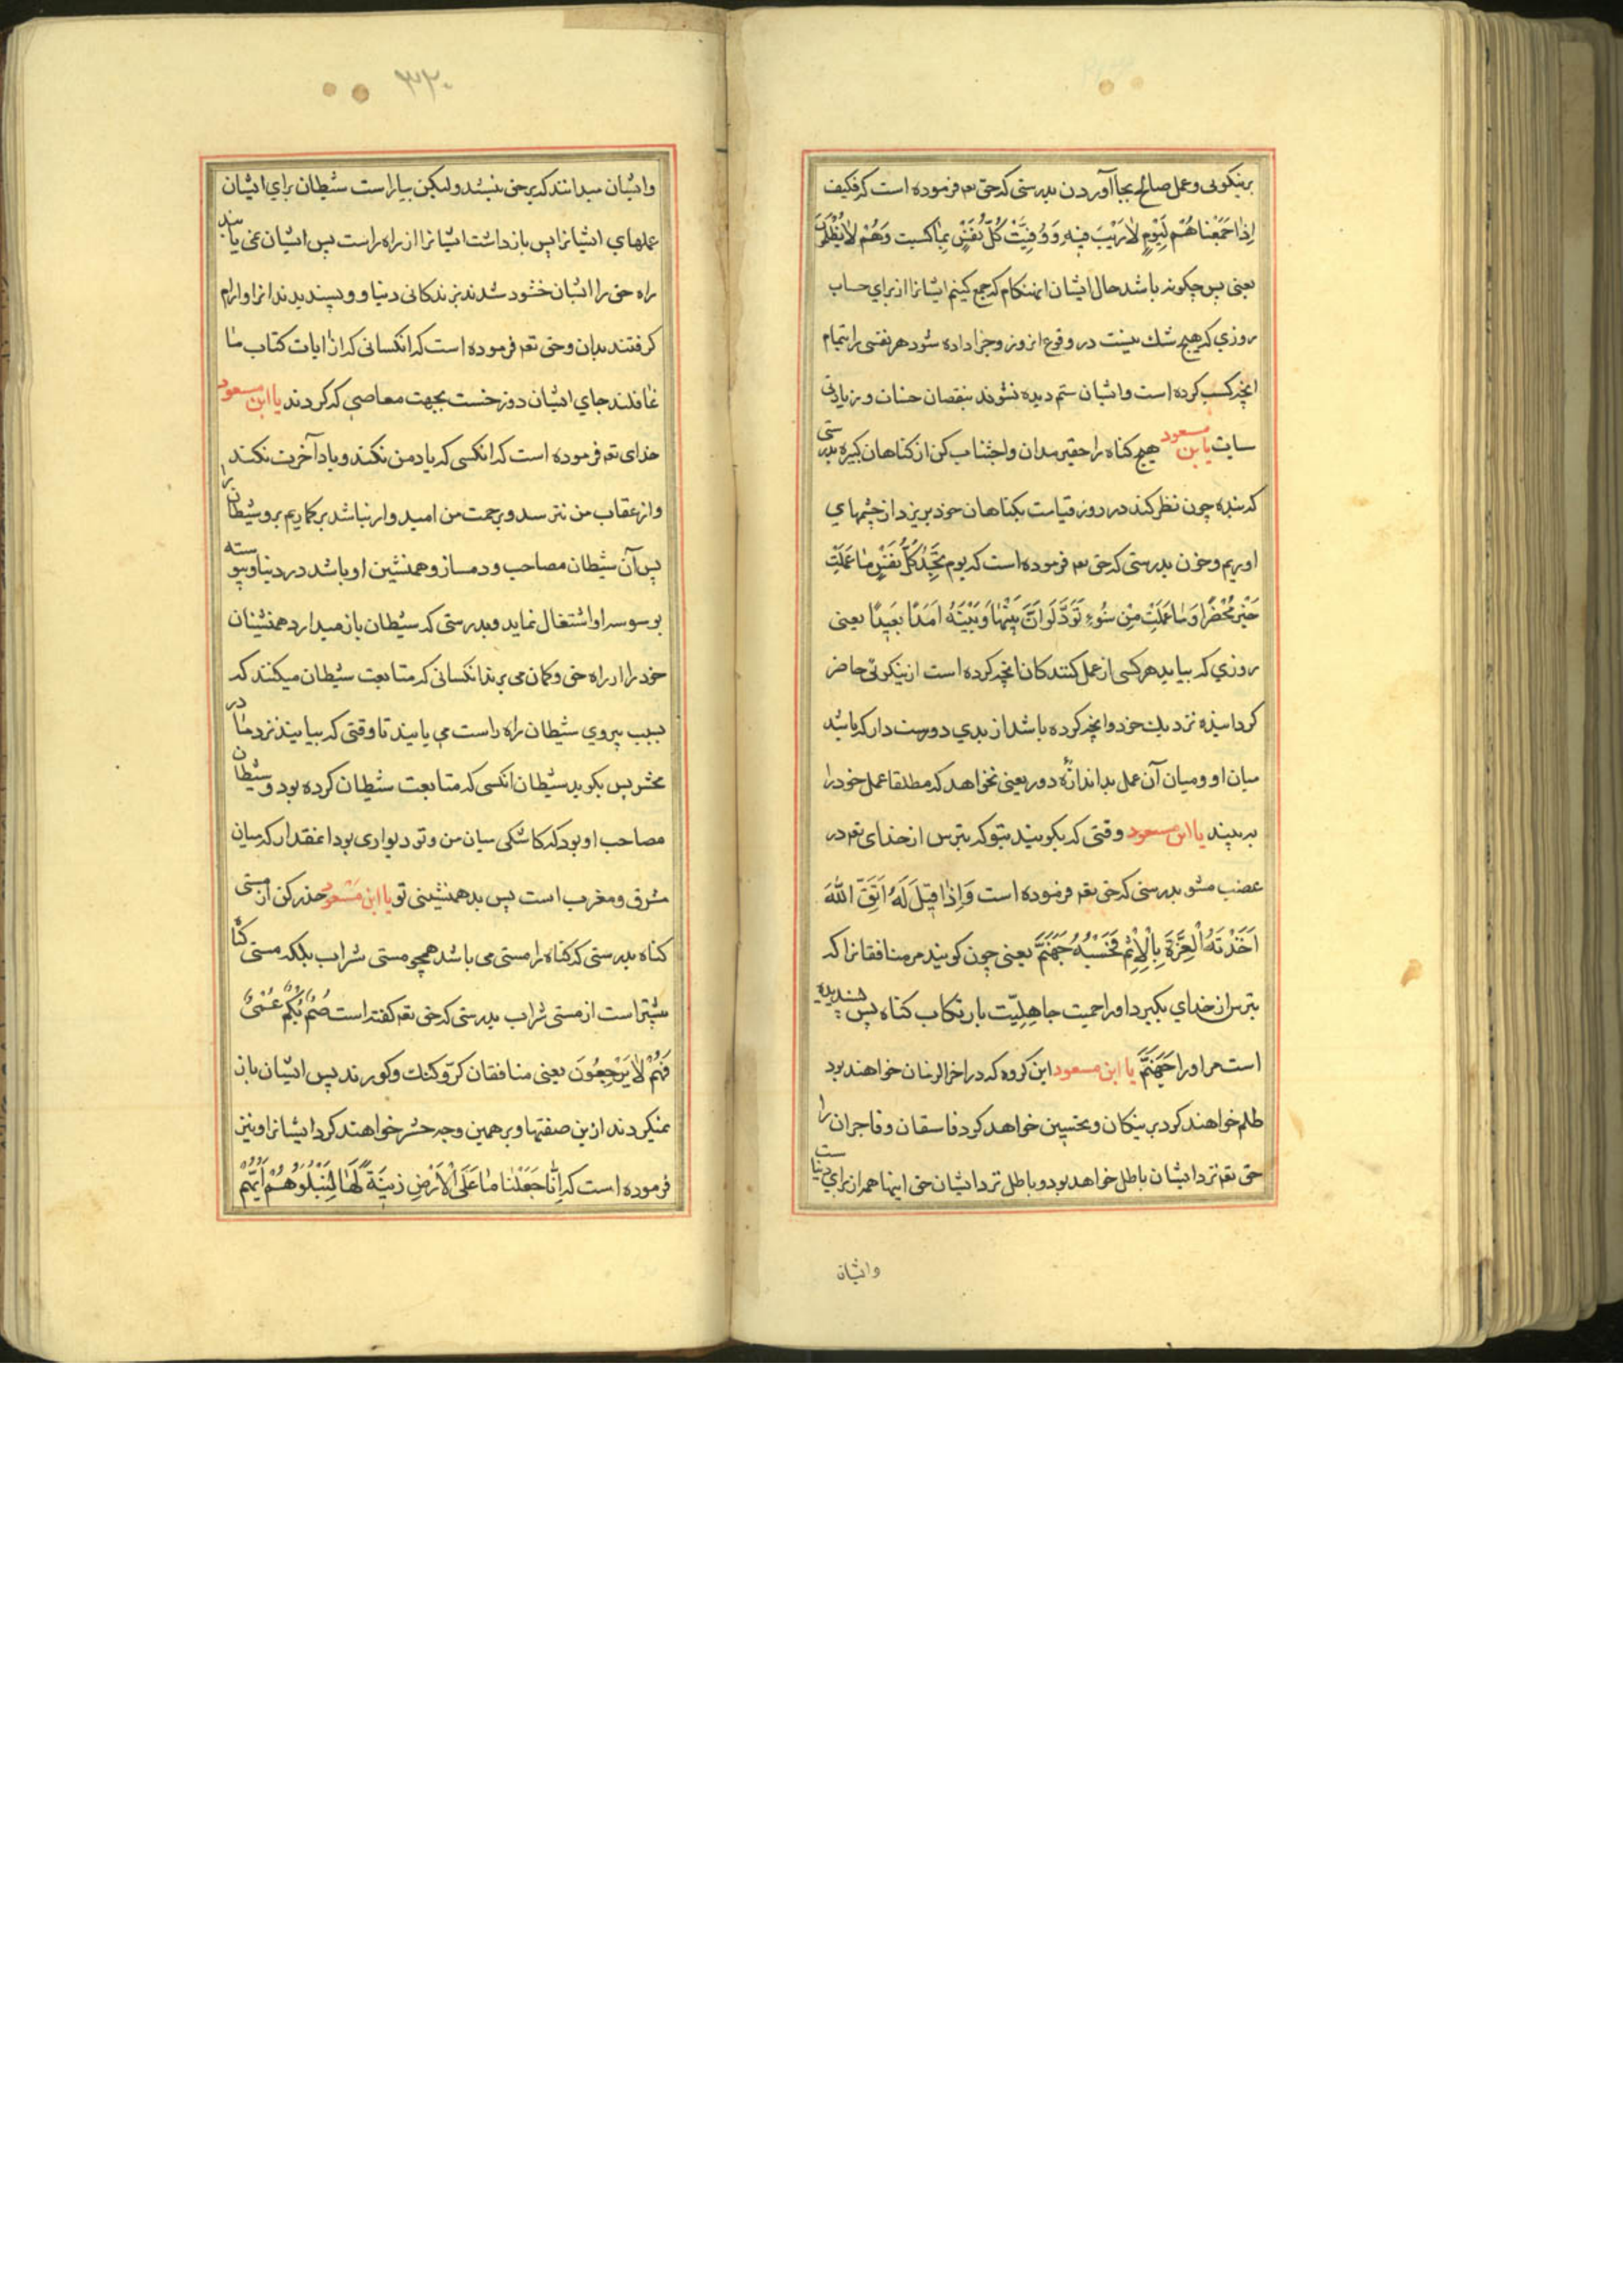 برنیکوئی و عمل صالح بجا آوردن بدرستی که حق تعم فرموده است که فکیف
اِذا جَمَعْناهُمْ لِیَوْمٍ لاٰرَیْبَ فیهِ وَ وُفِیَّتْ کُلُّ نَفْسٍ بِماٰ کسبت وَهُمْ لاٰیُظْلَمُونَ
یعنی پس چکونه باشد حال ایشان انهنکام که جمع کنیم ایشانرا از برای حساب
روزی که هیچ شك نیست در وقوع انروز و جزا داده شود هر نفسی را بتمام
انچه کسب کرده است و ایشان ستم دیده نشوند بنقصان حسنات و زیادتی
سیات یا بن مسعود هیچ کناه را حقیر مدان و اجتناب کن از کناهان کبیره بدرستی
که بنده چون نظر کند در روز قیامت بکناهان خود بریزد از چشمهای
او ریم و خون بدرستی که حق تعم فرموده است که یوم تَجِدُ کُلُّ نَفْسٍ ماٰ عَمِلَتْ
خَیْرٍ مُحْضَرًا وَ ماٰ عَمِلَتْ مِنْ سُوءٍ تَوَدُّ لَوْ اَنَّ بَیْنَهاٰ وَ بَیْنَهُ اَمَدًا بَعیدًا یعنی
روزی که بیابد هر کسی از عمل کنندکان انچه کرده است از نیکوئی حاضر
کردانیده نزدیك خود و انچه کرده باشد از بدی دوست دارد که باشد
میان او و میان آن عمل بد اندازهٔ دور یعنی نخواهد که مطلقا عمل خود را
به بیند یا ابن مسعود وقتی که بکویند بتو که بترس از خدای تعم در
غضب مشو بدرستی که حق تعم فرموده است وَاِذاٰ قیٖلَ لَهُ اتَّقِ اللّٰهَ
اَخَذَتْهُ الْعِزَّةُ بِالْاِثْمِ فَحَسْبُهُ جَهَنَّمُ یعنی چون کویند مر منافقانرا که
بترس از خدای بکیرد او را حمیت جاهِلِیّت بارتکاب کناه پس بسندیده
است مر او را جَهَنَّمُ یا ابن مسعود این کروه که در اخر الزمان خواهند بود
ظلم خواهند کرد بر نیکان و تحسین خواهد کرد فاسقان و فاجران را
حق تعم نزد ایشان باطل خواهد بود و باطل نزد ایشان حق اینها همه از برای دنیاست
وایشان
۳۲۰
وایشان میدانند که برحق نیستند ولیکن بیاراست شیطان برای ایشان
عملهای ایشانرا پس بازداشت ایشانرا از راه راست پس ایشان نمی یابند
راه حق را ایشان خشنود شدند بزندکانی دنیا و و پسندیدند انرا و ارام
کرفتند بدان و حق تعم فرموده است که انکسانی که از ایات کتاب ماٰ
غافلند جای ایشان دوزخست بجهت معاصی که کردند یا ابن مسعود
خدای تعم فرموده است که انکسی که یاد من نکند و یاد آخرت نکند
و از عقاب من نترسد و برحمت من امیدوار نباشد برکماریم برو شیطان را
پس آن شیطان مصاحب و دمساز و همنشین او باشد در دنیا و پیوسته
بوسوسه او اشتغال نماید و بدرستی که شیطان باز میدارد همنشینان
خود را از راه حق و کمان می برند انکسانی که متابعت شیطان میکنند که
بسبب پیروی شیطان راه راست می یابند تا وقتی که بیایند نزد ماٰ در
محشر پس بکوید شیطان انکسی که متابعت شیطان کرده بود و شیطان
مصاحب او بود که کاشکی میان من و تو دیواری بود انمقدار که میان
مشرق و مغرب است پس بد همنشینی تو یا ابن مَسْعود حذر کن از مستی
کناه بدرستی که کناه را مستی می باشد همچو مستی شراب بلکه مستی کناٰه
بیشتر است از مستی شراب بدرستی که حق تعم کفته است صُمٌّ بُکْمٌ عُمْیٌ
فَهُمْ لاٰیَرْجِعُونَ یعنی منافقان کر و کنك و کورند پس ایشان باز
نمیکردند ازین صفتها و برهمین وجه حشر خواهند کرد ایشانرا و نیز
فرموده است که اِنّٰا جَعَلْناٰ ماٰ عَلَی الْاَرْضِ زیٖنَةً لَهاٰ لِنَبْلُوَهُمْ اَیُّهُمْ